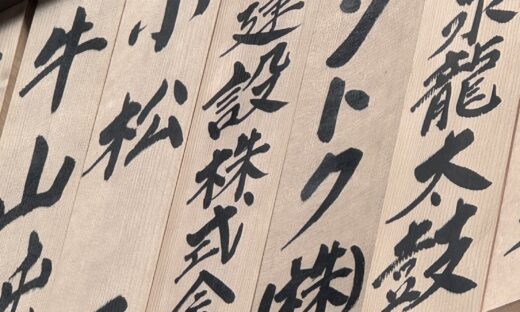 龍太鼓
トク㈱
建設株式会
小松
牛山